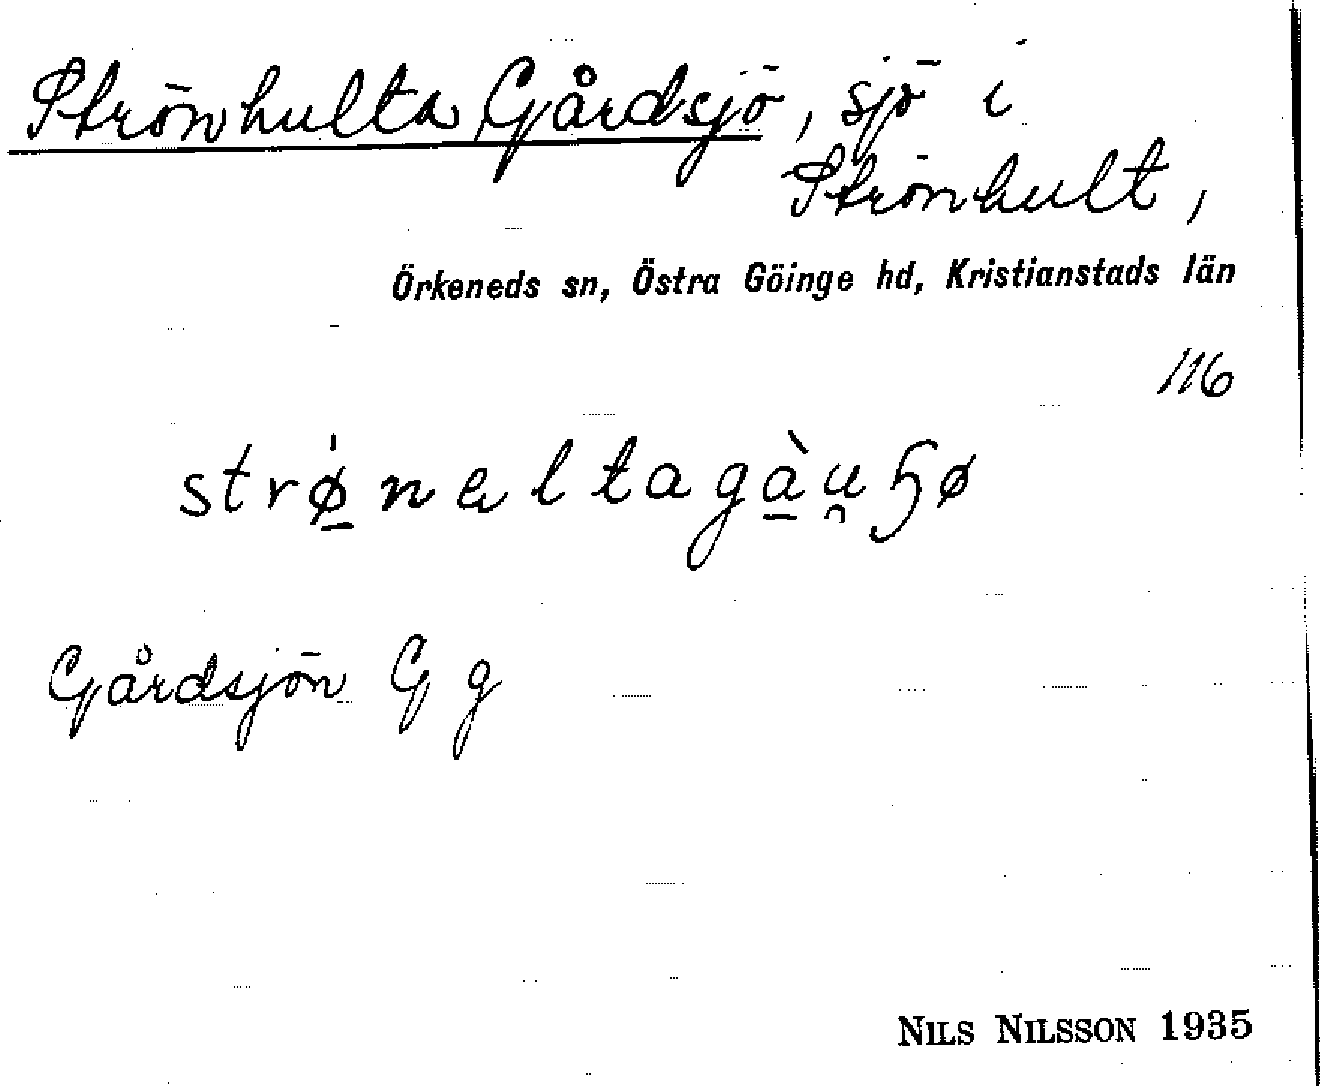 Strönhulta Gårdsjö, sjö i
Strönhult,
Örkeneds sn, Östra Göinge hd, Kristianstads län
116
strǿ̱nəltagà̱u̯ɧø
Gårdsjön G g
NILS NILSSON 1935